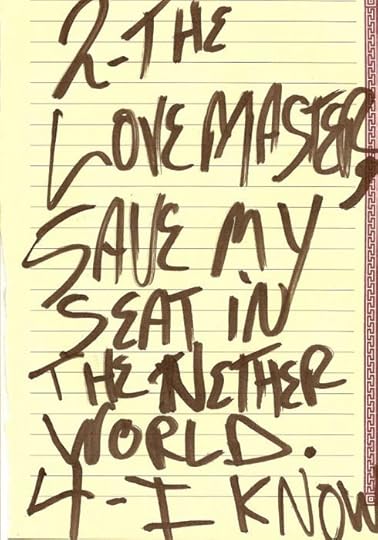 2-THE
LOVEMASTER,
SAVE MY
SEAT iN
THE NETHER
WORLD.
4-I KNOW